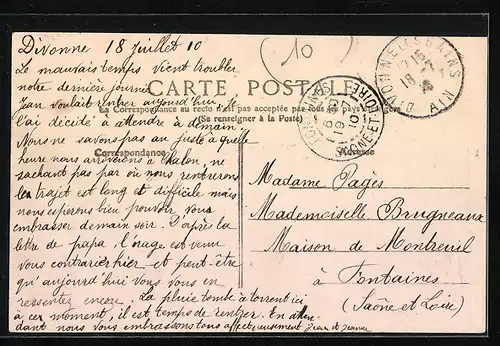 Divonne 18 Juillet 10
Le mauvais temps vient troubler
notre dernière journée.
Jean voulait rentrer aujourd'hui je
l'ai décidé à attendre à demain.
Nous ne savons pas au juste à quelle
heure nous arriverons à Chalon, ne
sachant pas par où nous rentrerons
le trajet est long et difficile mais
nous espérons bien pouvoir vous
embrasser demain soir. D'après la
lettre de papa, l'orage est venu
vous contrarier hier et peut-être
qu'aujourd'hui vous vous en
ressentez encore. La pluie tombe à torrent ici
à ce moment, il est temps de rentrer. En atten-
dant nous vous embrassons tous affectueusement Jean et Jeanne
10
CARTE POSTALE
La Correspondance au recto n'est pas acceptée par tous les pays étrangers
(Se renseigner à la Poste)
Correspondance
Adresse
DIVONNE-LES-BAINS
18
AIN
FONTAINES
19
10
SAONE-ET-LOIRE
Madame Pagès
Mademoiselle Brugneaux
Maison de Montreuil
à Fontaines
(Saône et Loire)